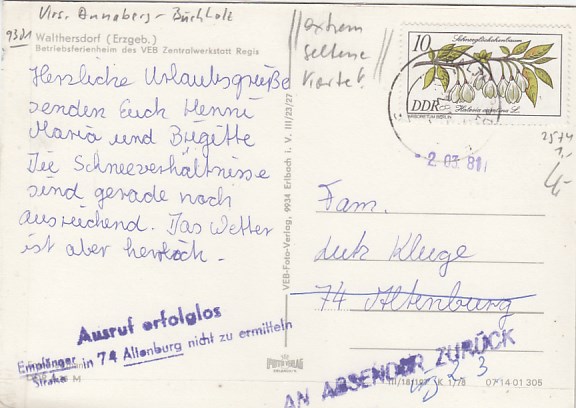 Krs. Annaberg-Buchholz
9301
Walthersdorf (Erzgeb.)
Betriebsferienheim des VEB Zentralwerkstatt Regis
extrem
seltene
Karte!
10
Schneeglöckchenbaum
DDR
Halesia carolina L.
ARBORETUM BERLIN
-2.03.81
2574
1,-
4,-
Herzliche Urlaubsgrüße
senden Euch Henni
Maria und Brigitte
Die Schneeverhältnisse
sind gerade noch
ausreichend. Das Wetter
ist aber herrlich.
VEB-Foto-Verlag, 9934 Erlbach i. V. III/23/27
Fam.
Lutz Kluge
74 Altenburg
Ausruf erfolglos
Empfänger in 74 Altenburg nicht zu ermitteln
Straße
M
AN ABSENDER ZURÜCK
FOTO VERLAG
K 1/78 07 14 01 305